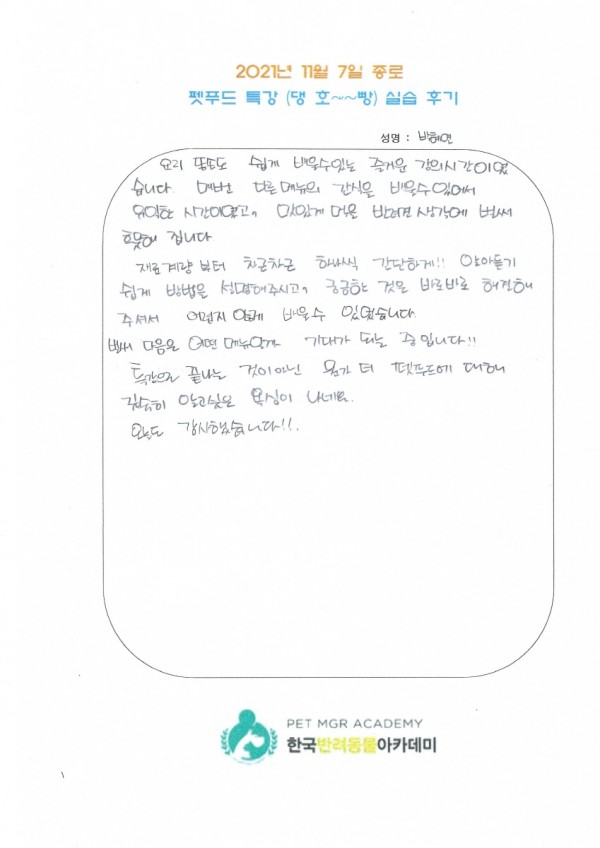 2021년 11월 7일 종로
펫푸드 특강 (댕 호~~빵) 실습 후기
성명 : 박혜연
요리 똥손도 쉽게 배울수있는 즐거운 강의시간이였
습니다. 매번 다른메뉴의 간식을 배울수있어서
유익한 시간이였고, 맛있게 먹을 반려견 생각에 벌써
흐뭇해 집니다
재료계량 부터 차근차근 하나씩 간단하게!! 알아듣기
쉽게 방법을 설명해주시고, 궁금한 것은 바로바로 해결해
주셔서 어렵지 않게 배울수 있었습니다.
벌써 다음은 어떤 메뉴일까 기대가 되는 중입니다!!
특강으로 끝나는 것이아닌 뭔가 더 펫푸드에 대해
깊숙히 알고싶은 욕심이 나네요.
오늘도 감사했습니다!!.
PET MGR ACADEMY
한국반려동물아카데미